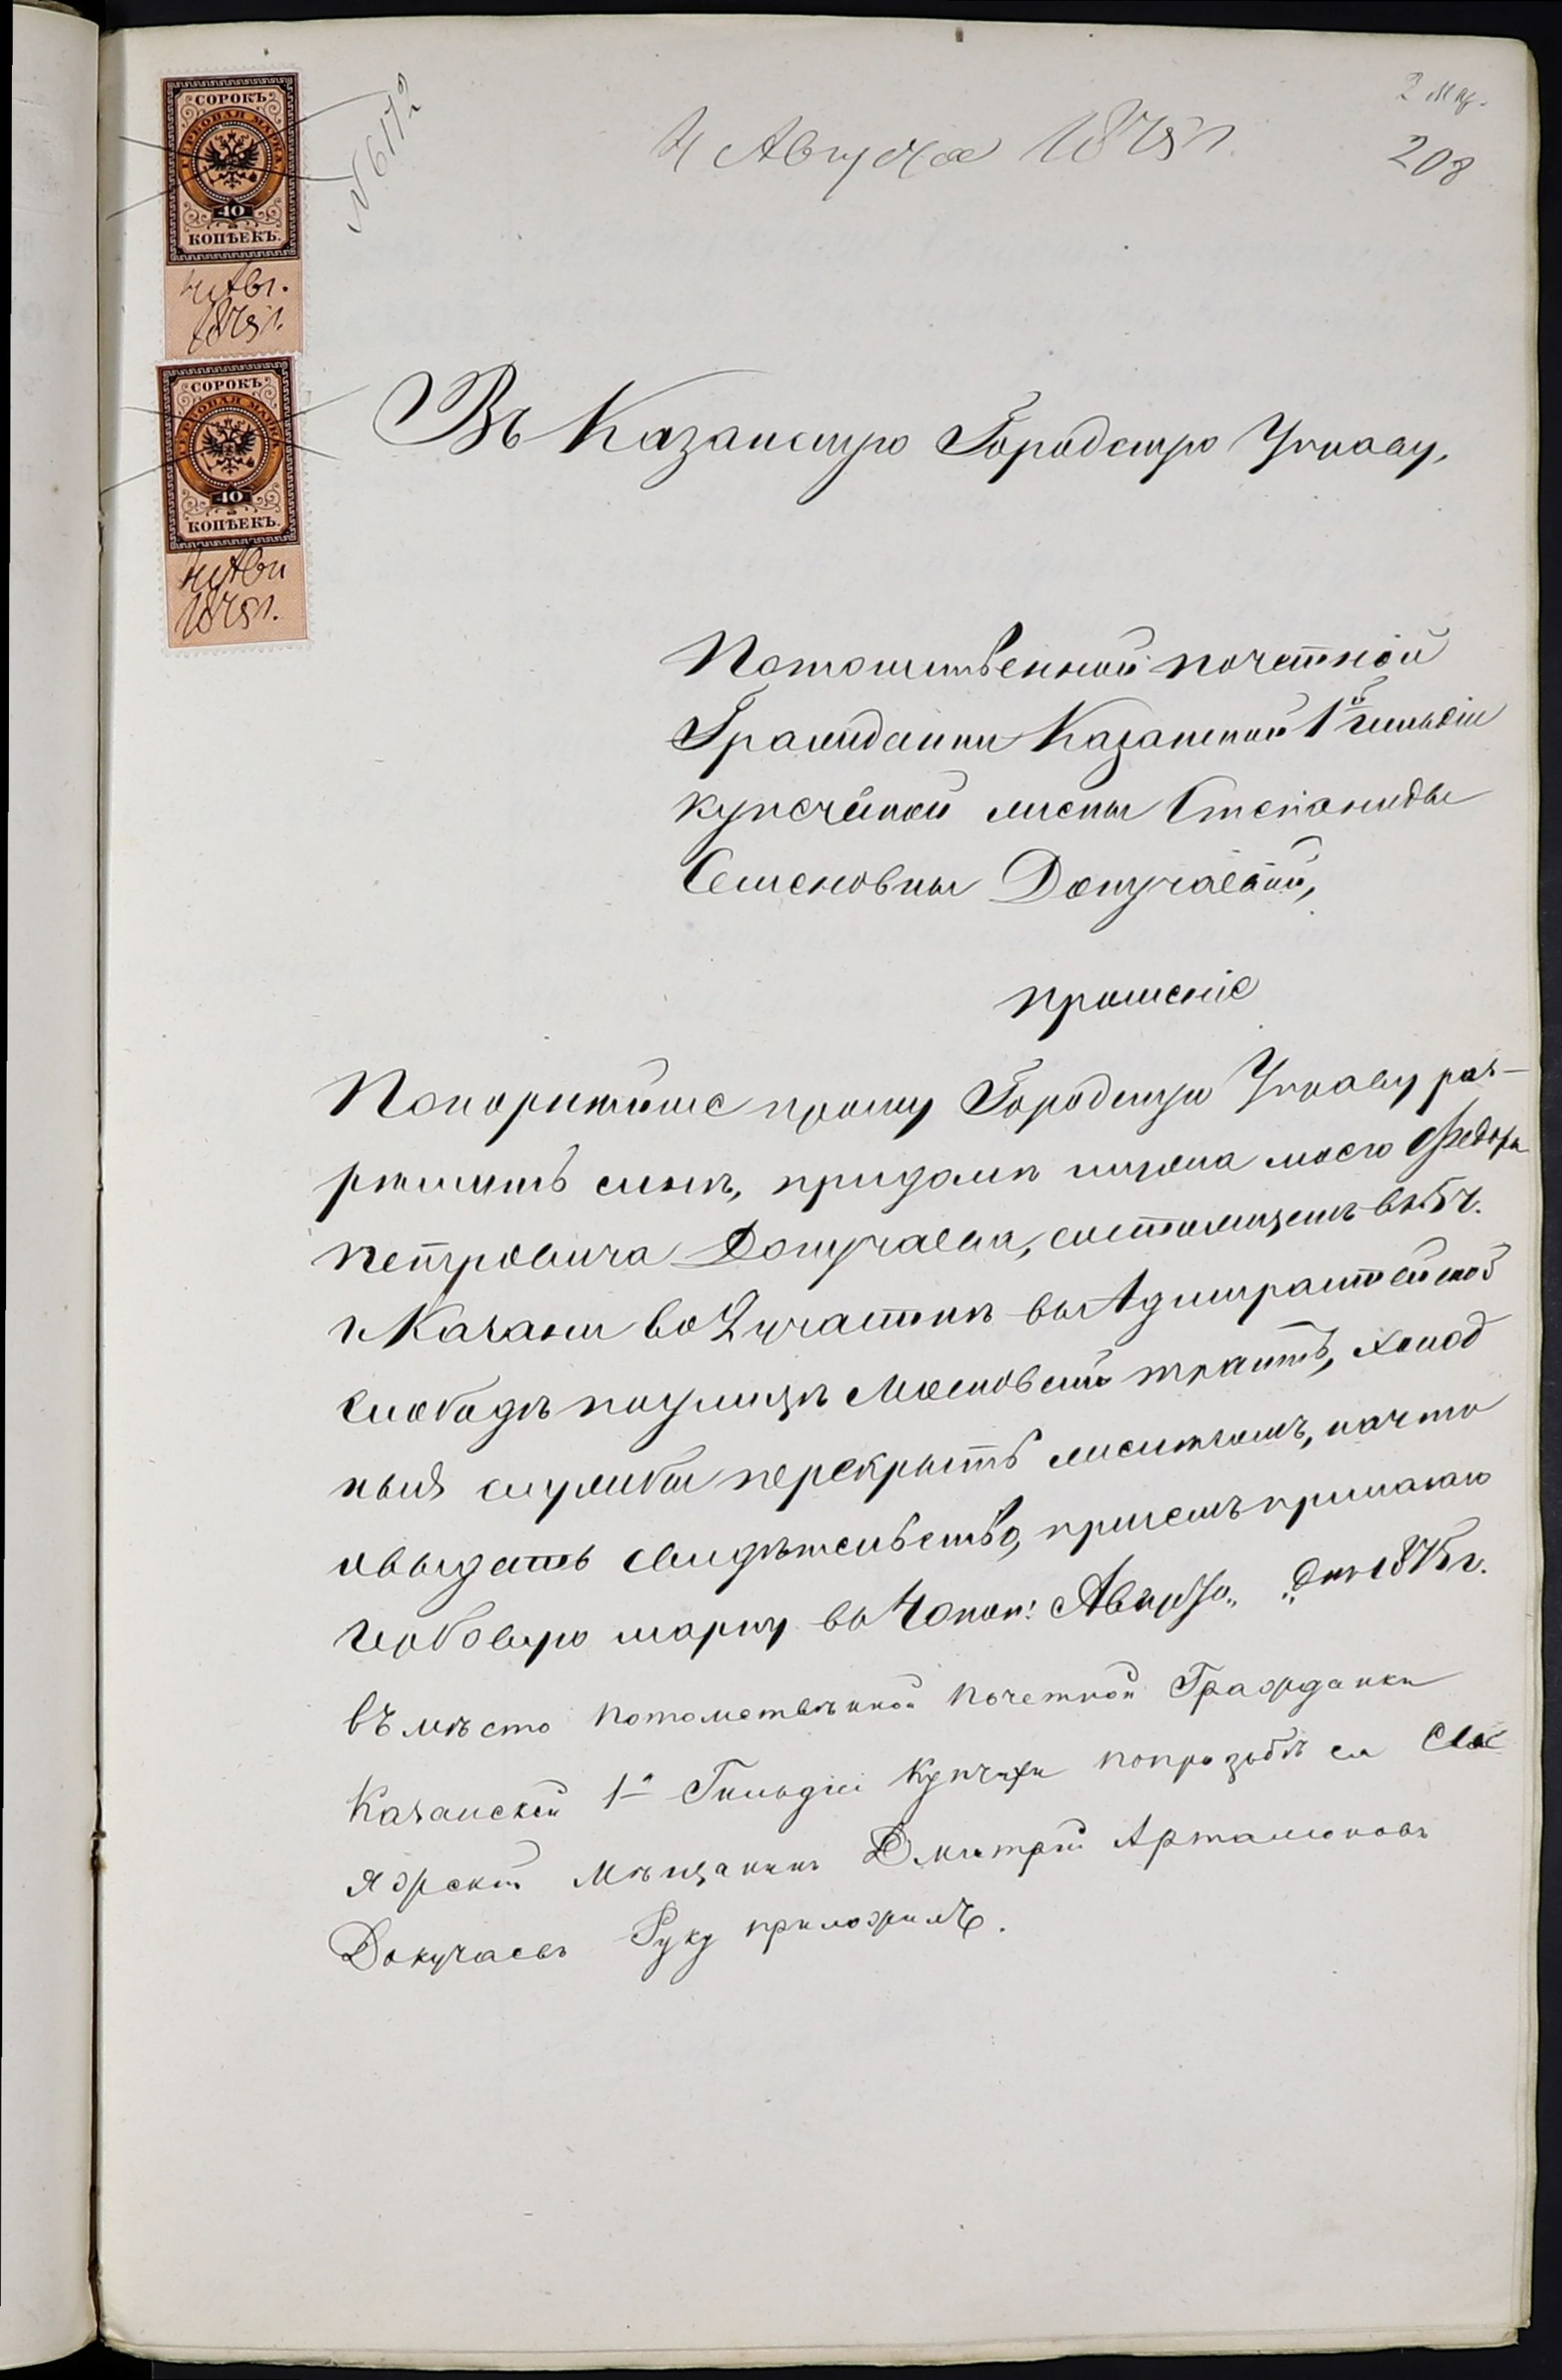 2 мар.
208
4 Августа 1875 г.
№ 6172
СОРОКЪ
ГЕРБОВАЯ МАРКА
40
КОПѢЕКЪ.
4 Авг.
1875 г.
СОРОКЪ
ГЕРБОВАЯ МАРКА
40
КОПѢЕКЪ.
4 Авг
1875 г.
Въ Казанскую Городскую Управу,
Потомственной почетной
Гражданки Казанской 1й гильдіи
купеческой жены Степаниды
Семеновны Докучаевой,
прошеніе
Покорнѣйше прошу Городскую Управу раз-
рѣшить мнѣ, придомѣ мужа моего Федора
Петровича Докучаева, состоящемъ въ 5 ч.
г. Казани во 2 участкѣ въ Адмиралтейской
слободѣ поулицѣ Московскій трактъ, холод
ныя службы перекрыть желѣзомъ, начто
ивыдать свидѣтельство, причемъ прилагаю
гербовую марку въ 40 коп: Августа „ „ дня 1875 г.
въмѣсто потомственной почетной Гражданки
Казанской 1й Гильдіи Купчихи попрозьбѣ ея Сві
яжскій мѣщанинъ Дмитрій Артамоновъ
Докучаевъ Руку приложилъ.